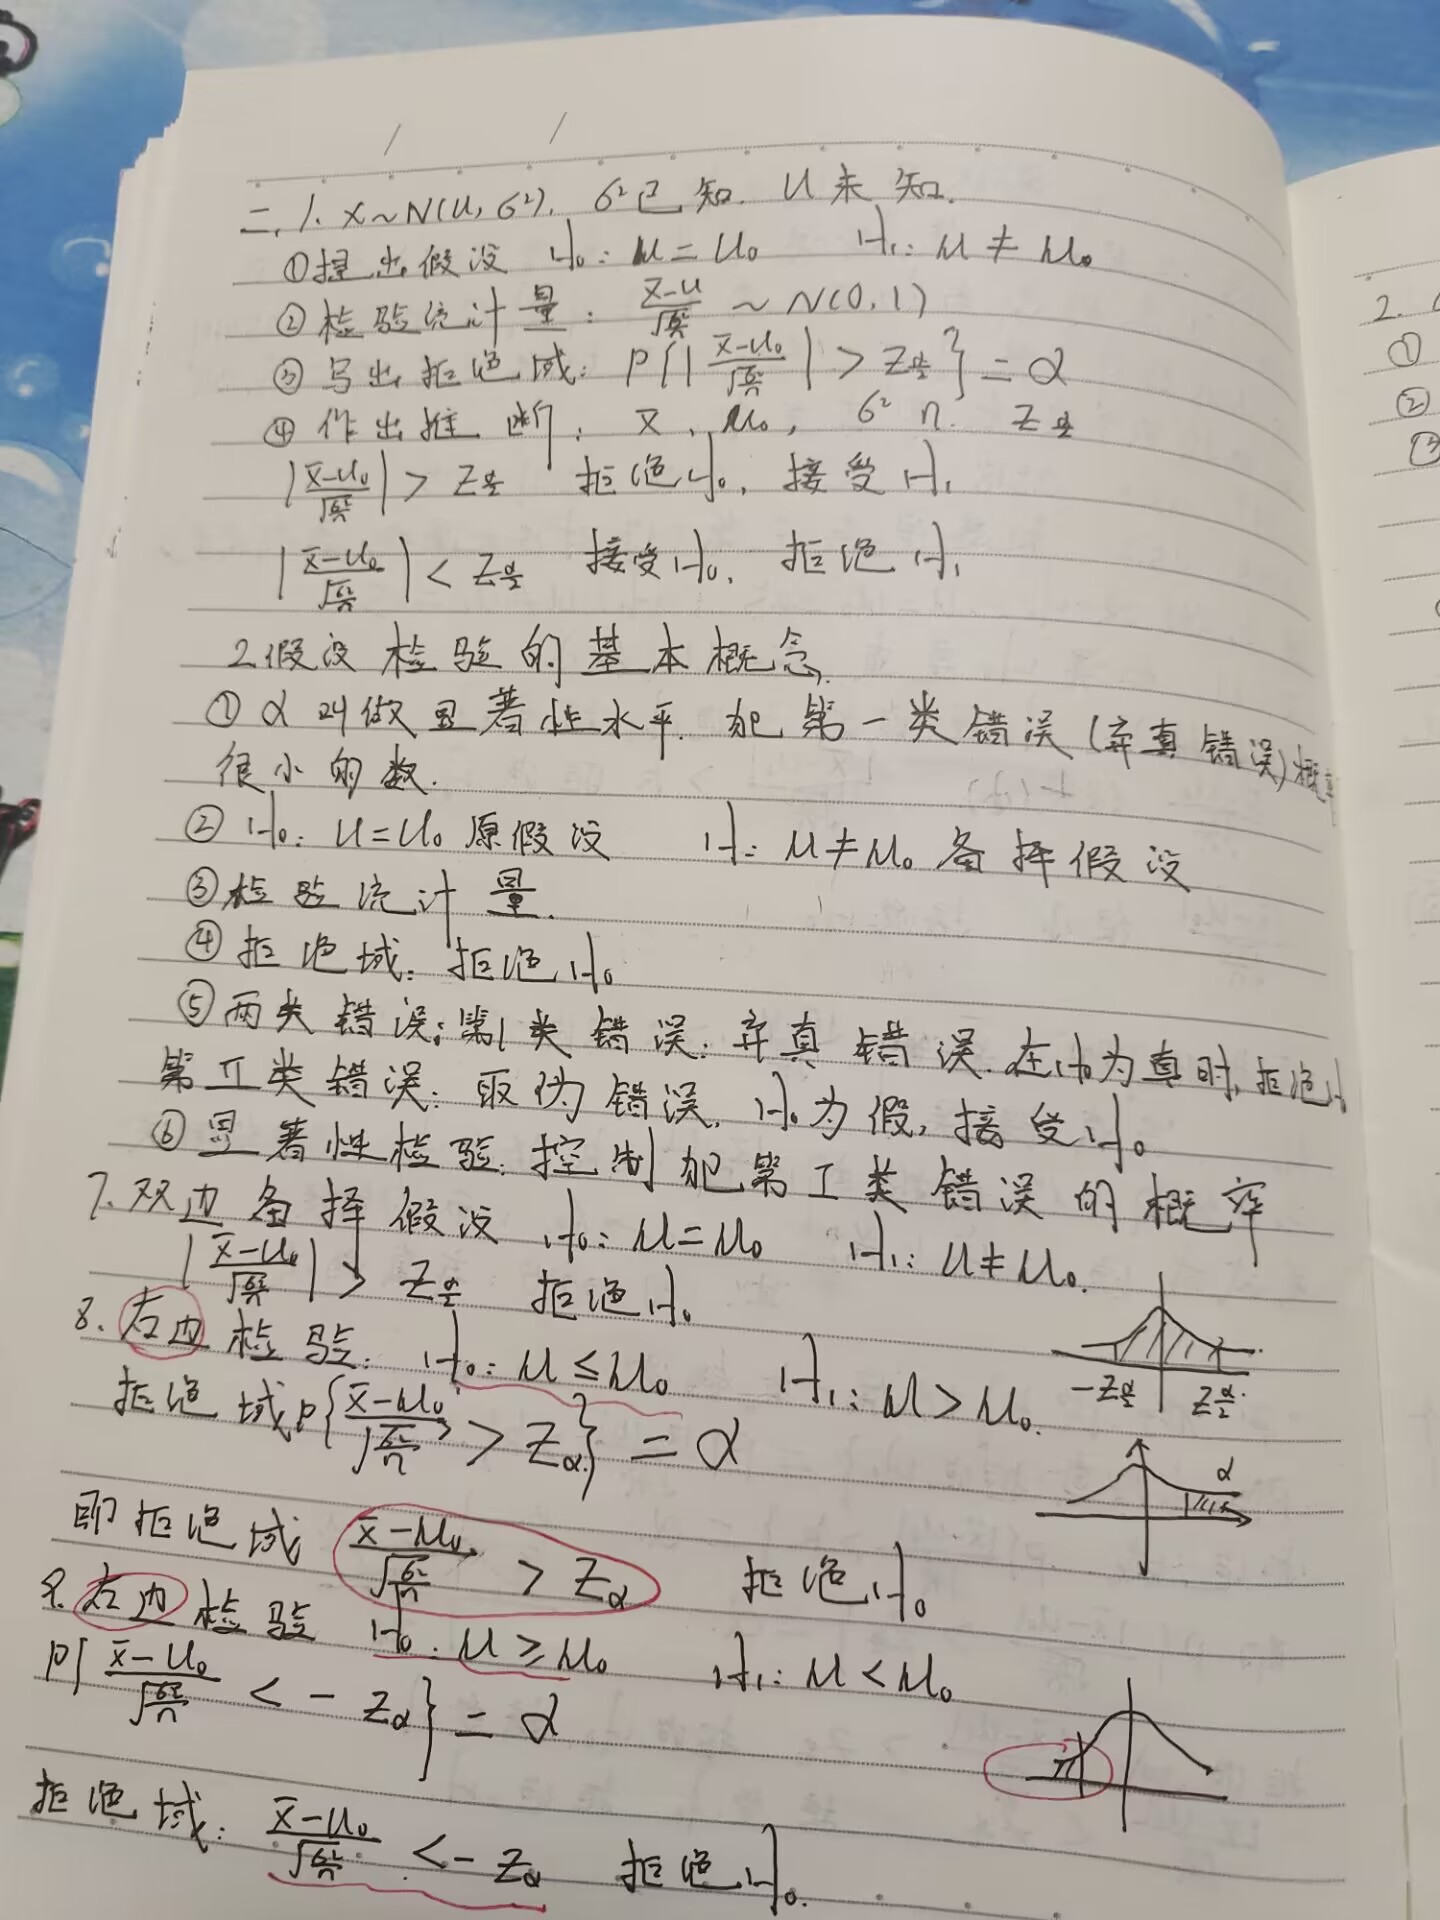 二、1. X~N(μ, σ²). σ²已知. μ未知.
①提出假设 H₀: μ = μ₀ H₁: μ ≠ μ₀
②检验统计量: (X̄-μ)/√(σ²/n) ~ N(0,1)
③写出拒绝域: P{|(X̄-μ₀)/√(σ²/n)| > Z_{α/2}} = α
④作出推断, X̄, μ₀, σ² n. Z_{α/2}
|(X̄-μ₀)/√(σ²/n)| > Z_{α/2} 拒绝H₀, 接受H₁
|(X̄-μ₀)/√(σ²/n)| < Z_{α/2} 接受H₀. 拒绝H₁
2.假设检验的基本概念.
①α叫做显著性水平. 犯第一类错误(弃真错误)概
很小的数.
②H₀: μ=μ₀原假设 H: μ≠μ₀备择假设
③检验统计量.
④拒绝域: 拒绝H₀
⑤两类错误: 第1类错误: 弃真错误. 在H₀为真时, 拒绝H
第Ⅱ类错误: 取伪错误, H₀为假, 接受H₀
⑥显著性检验: 控制犯第Ⅰ类错误的概率
7.双边备择假设 H₀: μ=μ₀ H₁: μ≠μ₀.
|(X̄-μ₀)/√(σ²/n)| > Z_{α/2} 拒绝H₀
8.右边检验: H₀: μ≤μ₀ H₁: μ>μ₀.
-Z_{α/2} Z_{α/2}
拒绝域P{(X̄-μ₀)/√(σ²/n) > Z_α} = α
α
即拒绝域 (X̄-μ₀)/√(σ²/n) > Z_α 拒绝H₀
9.左边检验 H₀: μ≥μ₀ H₁: μ<μ₀
P{(X̄-μ₀)/√(σ²/n) < -Z_α} = α
拒绝域: (X̄-μ₀)/√(σ²/n) < -Z_α 拒绝H₀.
2.
①
②
③